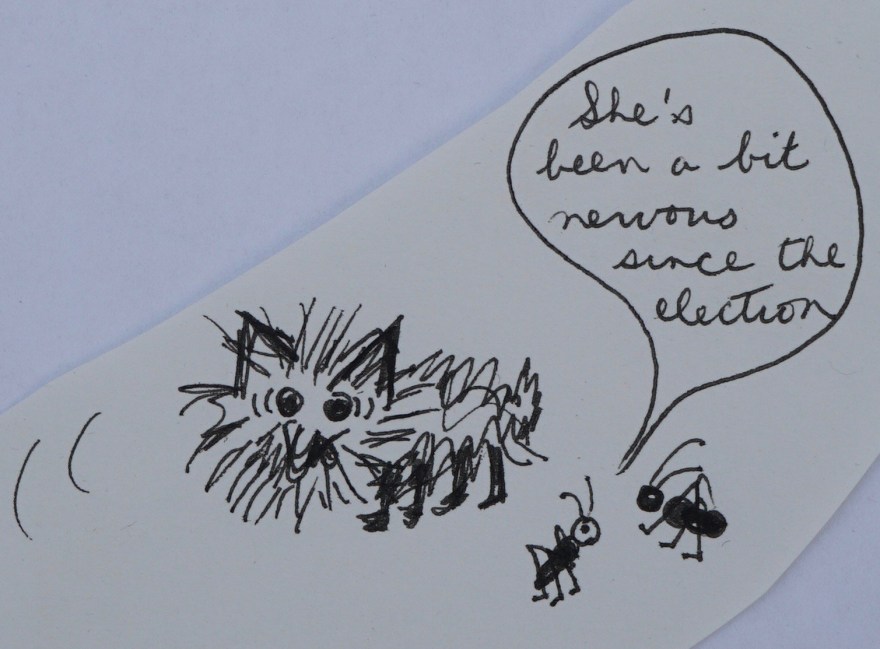 She's
been a bit
nervous
since the
election